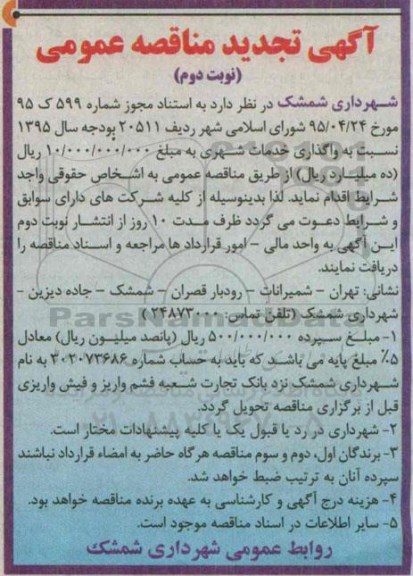 آگهی تجدید مناقصه عمومی
(نوبت دوم)
شهرداری شمشک در نظر دارد به استناد مجوز شماره ۵۹۹ ک ۹۵
مورخ ۹۵/۰۴/۲۴ شورای اسلامی شهر ردیف ۲۰۵۱۱ بودجه سال ۱۳۹۵
نسبت به واگذاری خدمات شهری به مبلغ ۱۰/۰۰۰/۰۰۰/۰۰۰ ریال
(ده میلیارد ریال) از طریق مناقصه عمومی به اشخاص حقوقی واجد
شرایط اقدام نماید. لذا بدینوسیله از کلیه شرکت های دارای سوابق
و شرایط دعوت می گردد ظرف مدت ۱۰ روز از انتشار نوبت دوم
این آگهی به واحد مالی – امور قرارداد ها مراجعه و اسناد مناقصه را
دریافت نمایند.
نشانی: تهران – شمیرانات – رودبار قصران – شمشک – جاده دیزین –
شهرداری شمشک (تلفن تماس: ۲۴۸۷۳۰۰۰)
ParsNamadData
۱- مبلغ سپرده ۵۰۰/۰۰۰/۰۰۰ ریال (پانصد میلیون ریال) معادل
۵٪ مبلغ پایه می باشد که باید به حساب شماره ۳۰۲۰۷۳۶۸۶ به نام
شهرداری شمشک نزد بانک تجارت شعبه فشم واریز و فیش واریزی
قبل از برگزاری مناقصه تحویل گردد.
۲- شهرداری در رد یا قبول یک یا کلیه پیشنهادات مختار است.
۳- برندگان اول، دوم و سوم مناقصه هرگاه حاضر به امضاء قرارداد نباشند
سپرده آنان به ترتیب ضبط خواهد شد.
۴- هزینه درج آگهی و کارشناسی به عهده برنده مناقصه خواهد بود.
۵- سایر اطلاعات در اسناد مناقصه موجود است.
روابط عمومی شهرداری شمشک